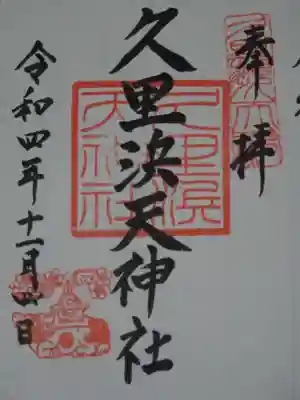 奉拝
久里浜天神社
令和四年十一月四日
久里浜
天神社